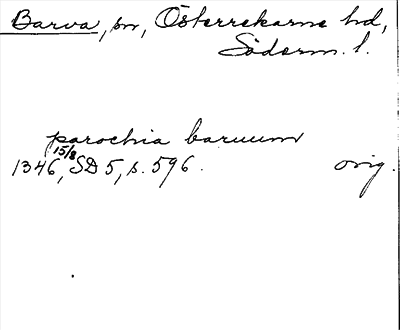 Barva, sn, Österrekarne hd,
Söderm. l.
parochia baruum
15/8
1346, SD 5, s. 596. orig.